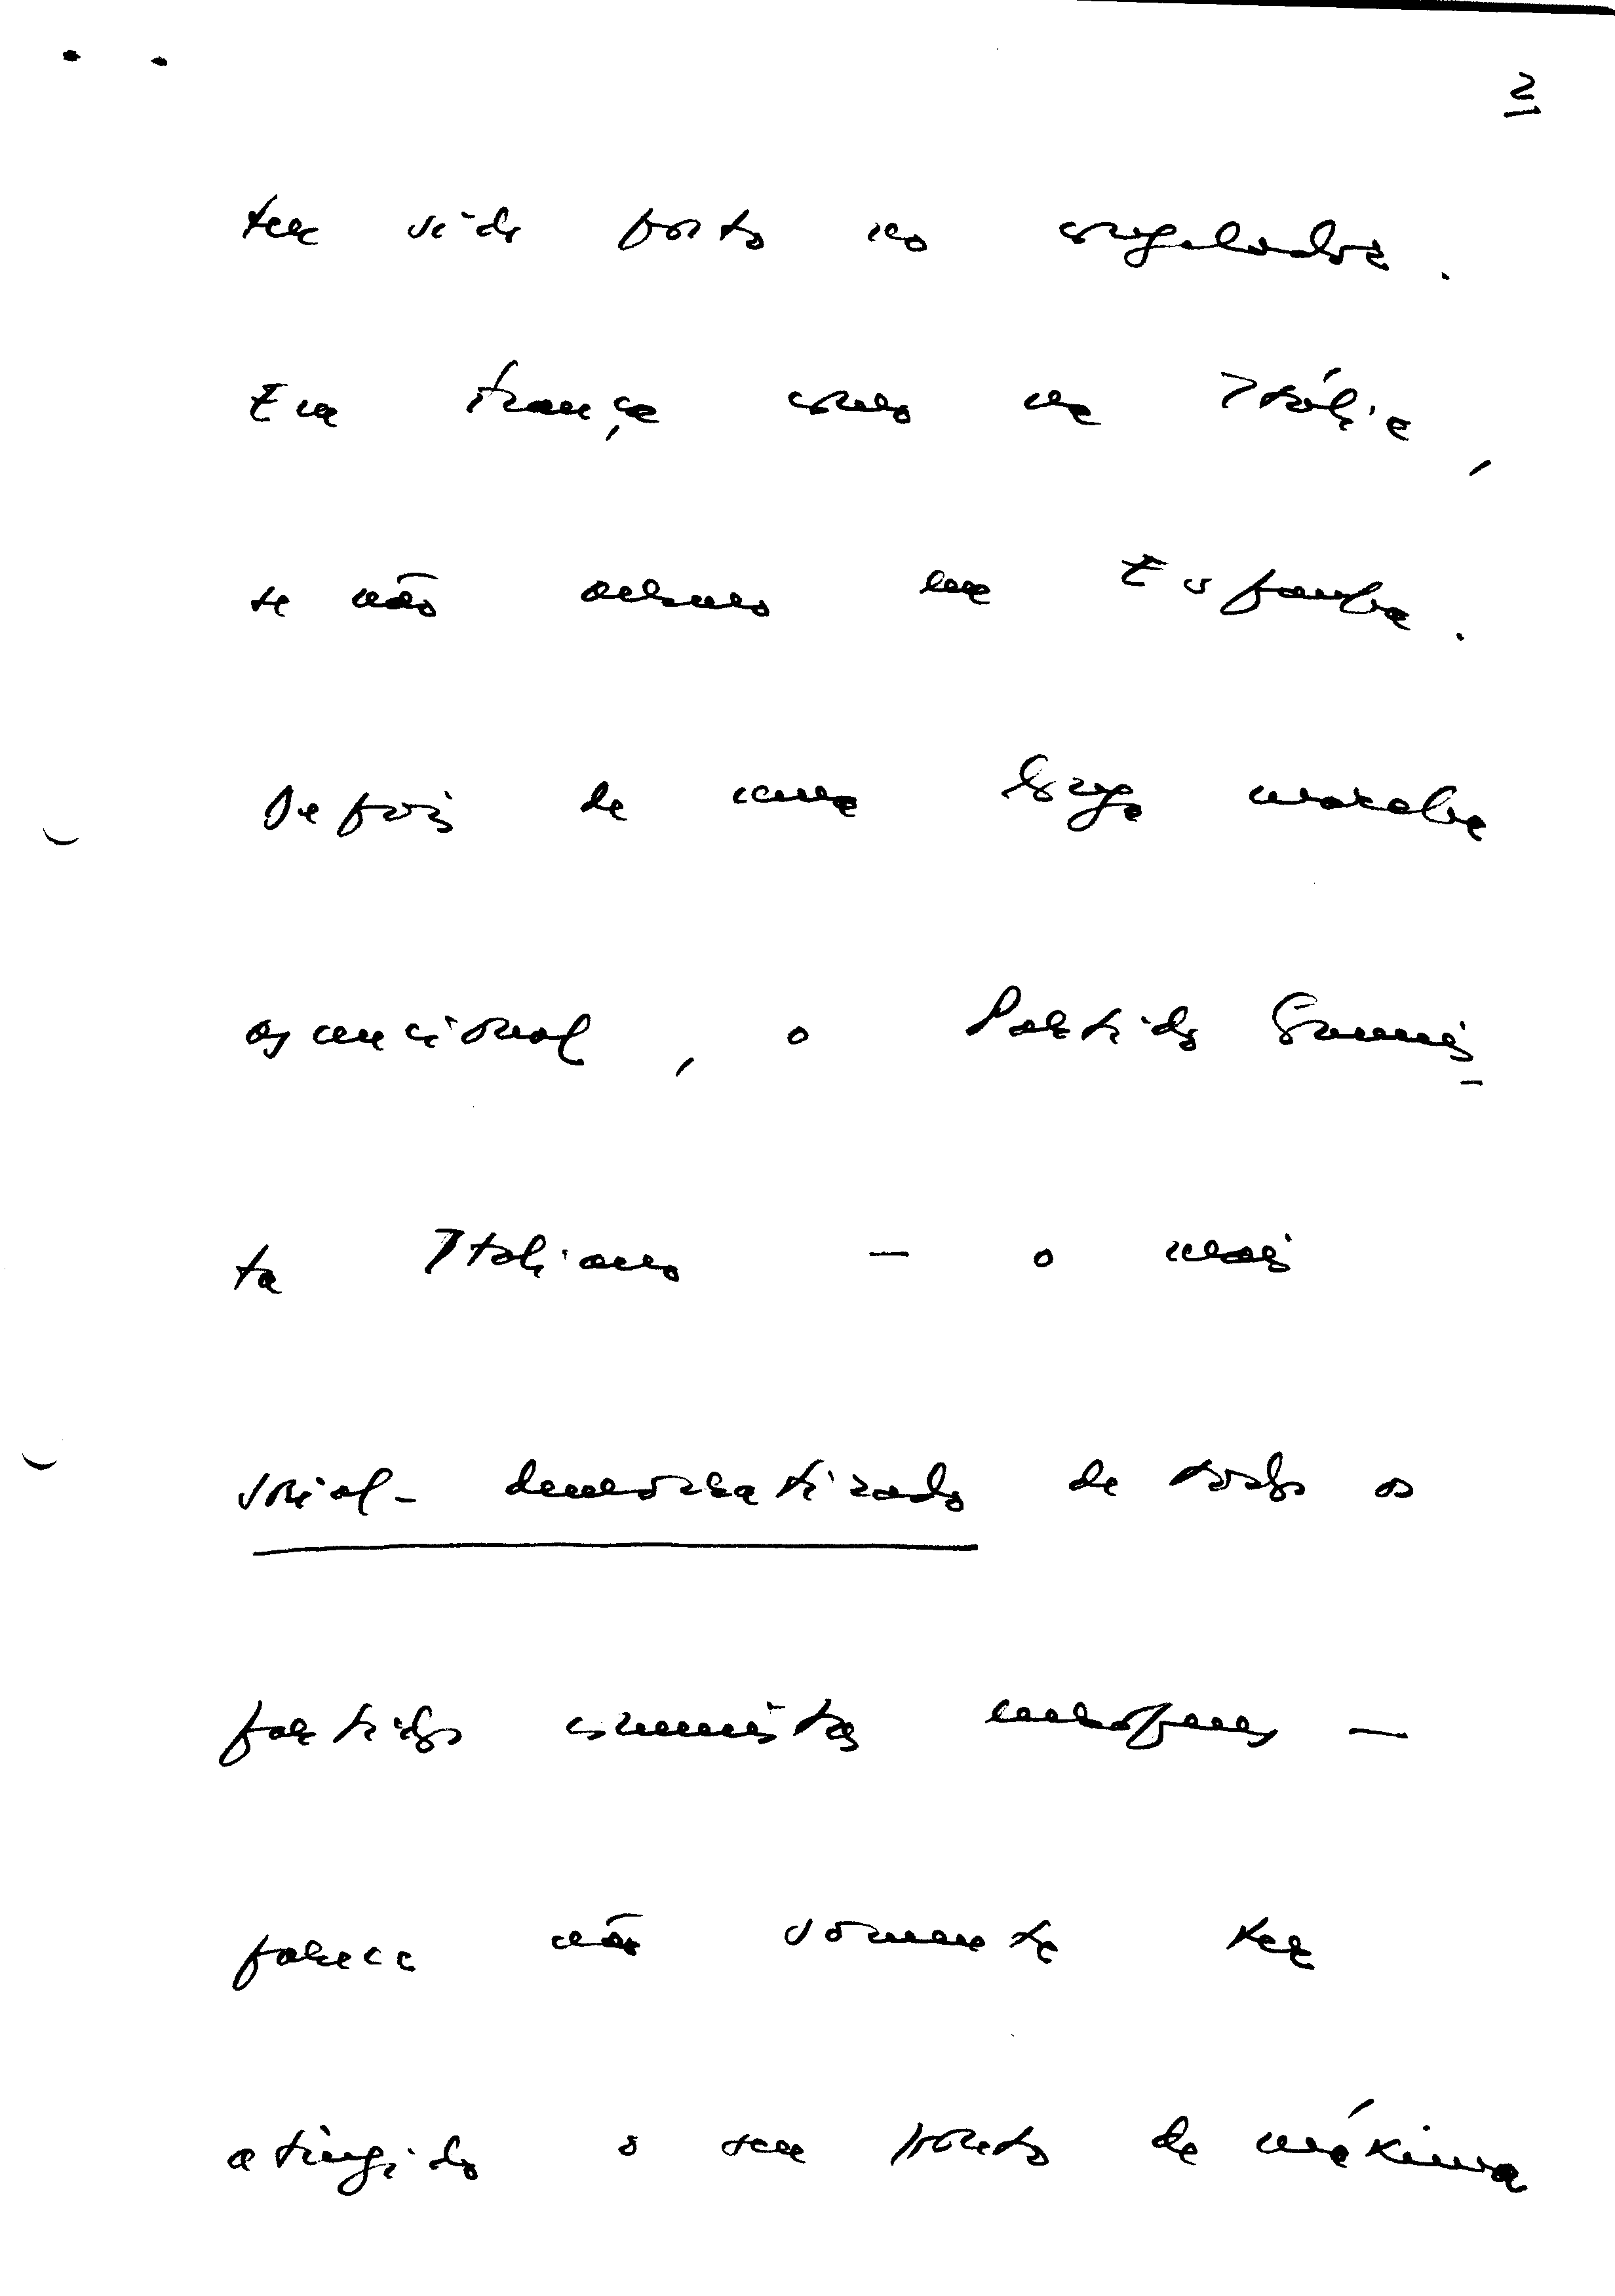 2
tem sido posto no congelador.
Em França como na Itália,
se não mesmo em Espanha.
Depois de uma longa marcha
ascencional, o Partido Comunis-
ta Italiano — o mais
social-democratizado de todos os
partidos comunistas europeus —
parece não somente ter
atingido o seu ponto de máxima